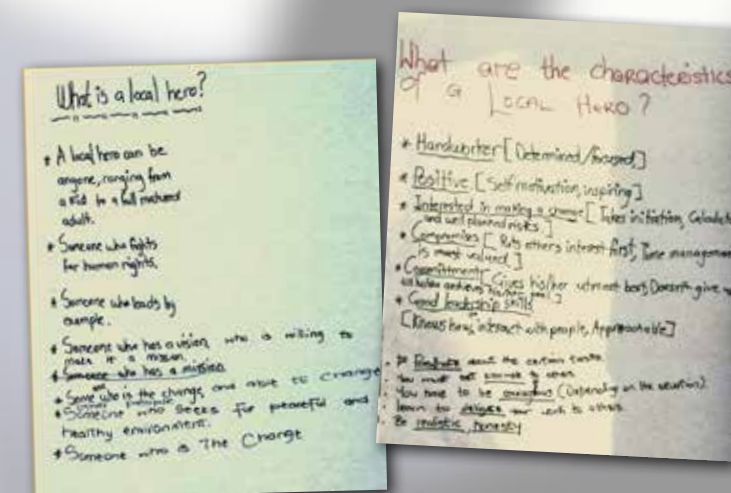 What is a local hero?
* A local hero can be
anyone, ranging from
a kid to a full matured
adult.
* Someone who fights
for human rights.
* Someone who leads by
example.
* Someone who has a vision, who is willing to
make it a mission.
* Someone who has a mission
* Some one who is the change, and able to change
* Someone who seeks for peaceful and
healthy environment.
* Someone who is The Change
What are the characteristics
of a LOCAL HERO?
* Hardworker [Determined/focused]
* Positive [Self motivation, inspiring]
* Interested in making a change [Takes initiation,
and well planned risks.]
* Compromises [Puts others interest first, Time
is most valued.]
* Commitment [Gives his/her utmost best, Doesn't give
* Good leadership skills
[Knows how interact with people, Approachable]
about the certain
You must
You have to be (Depending on the situation)
learn to your work to others.
Be realistic, honesty